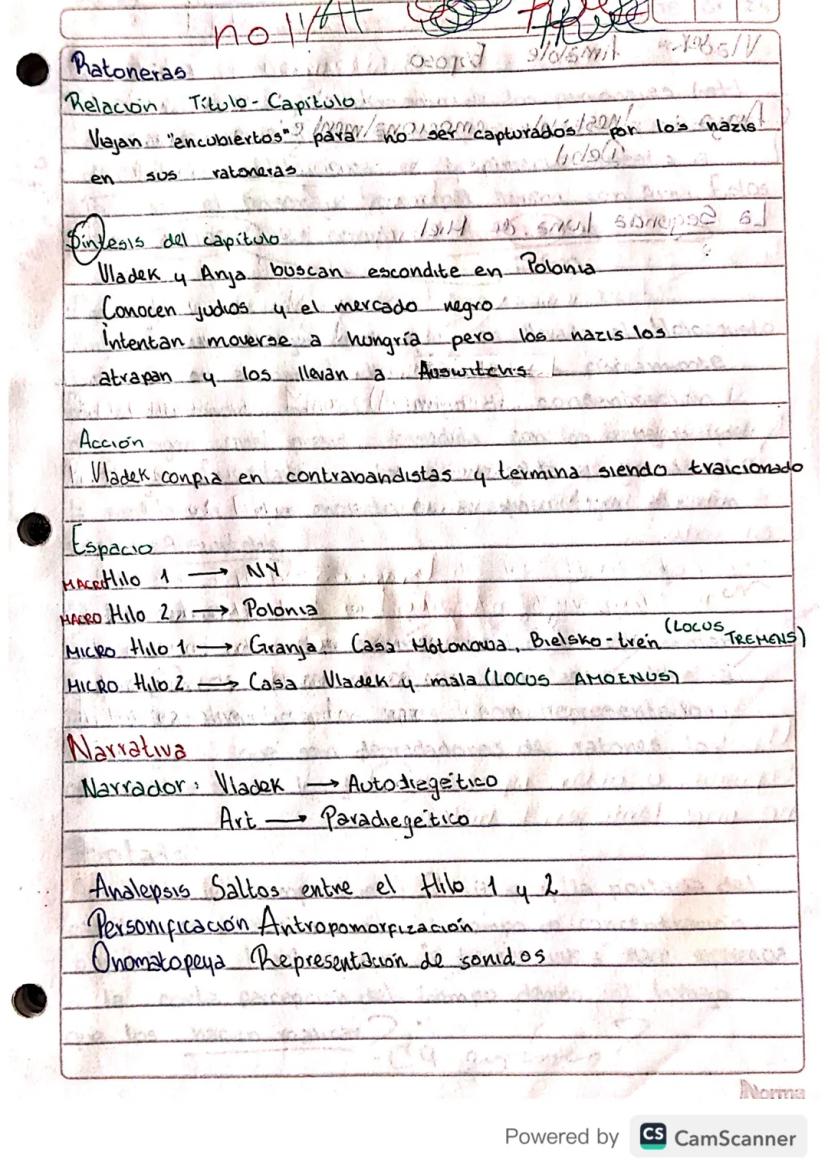 Ratoneras
Relación Título - Capítulo
Viajan "encubiertos" para no ser capturados por los nazis
en sus ratoneras
Síntesis del capítulo
Vladek y Anja buscan escondite en Polonia
Conocen judios y el mercado negro
Intentan moverse a hungría pero los nazis los
atrapan y los llevan a Auswitchs
Acción
1. Vladek confia en contrabandistas y termina siendo traicionado
Espacio
MACRO Hilo 1 → NY
MACRO Hilo 2 → Polonia
MICRO Hilo 1 → Granja, Casa Motonowa, Bielsko-tren (LOCUS TREMENS)
MICRO Hilo 2 → Casa Vladek y mala (LOCUS AMOENUS)
Narrativa
Narrador: Vladek → Autodiegético
Art → Paradiegético
Analepsis Saltos entre el Hilo 1 y 2
Personificación Antropomorfización
Onomatopeya Representación de sonidos
Norma
Powered by CS CamScanner